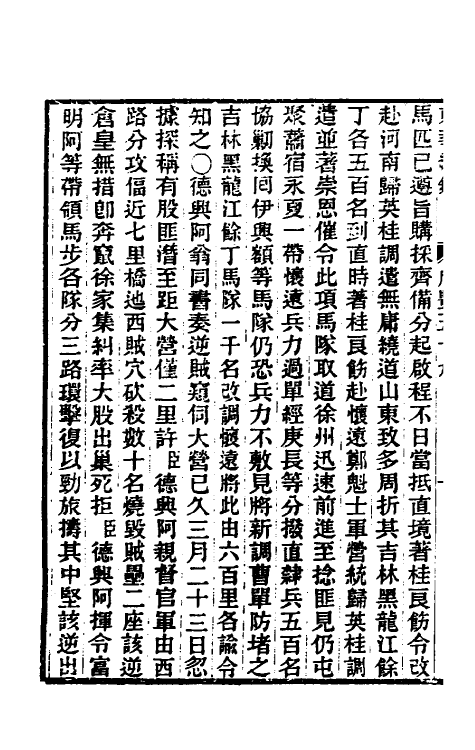 馬匹已遵旨購採齊備分起啟程不日當抵直境著桂良飭令改
赴河南歸英桂調遣無庸繞道山東致多周折其吉林黑龍江餘
丁各五百名到直時著桂良飭赴懷遠鄭魁士軍營統歸英桂調
遣並著崇恩催令此項馬隊取道徐州迅速前進至捻匪見仍屯
聚蕭宿永夏一帶懷遠兵力過單經庚長等分撥直隸兵五百名
協勦換回伊興額等馬隊仍恐兵力不敷見將新調曹單防堵之
吉林黑龍江餘丁馬隊一千名改調懷遠將此由六百里各諭令
知之〇德興阿翁同書奏逆賊窺伺大營已久三月二十三日忽
據探稱有股匪潛至距大營僅二里許臣德興阿親督官軍由西
路分攻偪近七里橋迤西賊穴砍殺數十名燒毀賊壘二座該逆
倉皇無措卽奔竄徐家集糾率大股出巢死拒臣德興阿揮令富
明阿等帶領馬步各隊分三路環擊復以勁旅擣其中堅該逆出